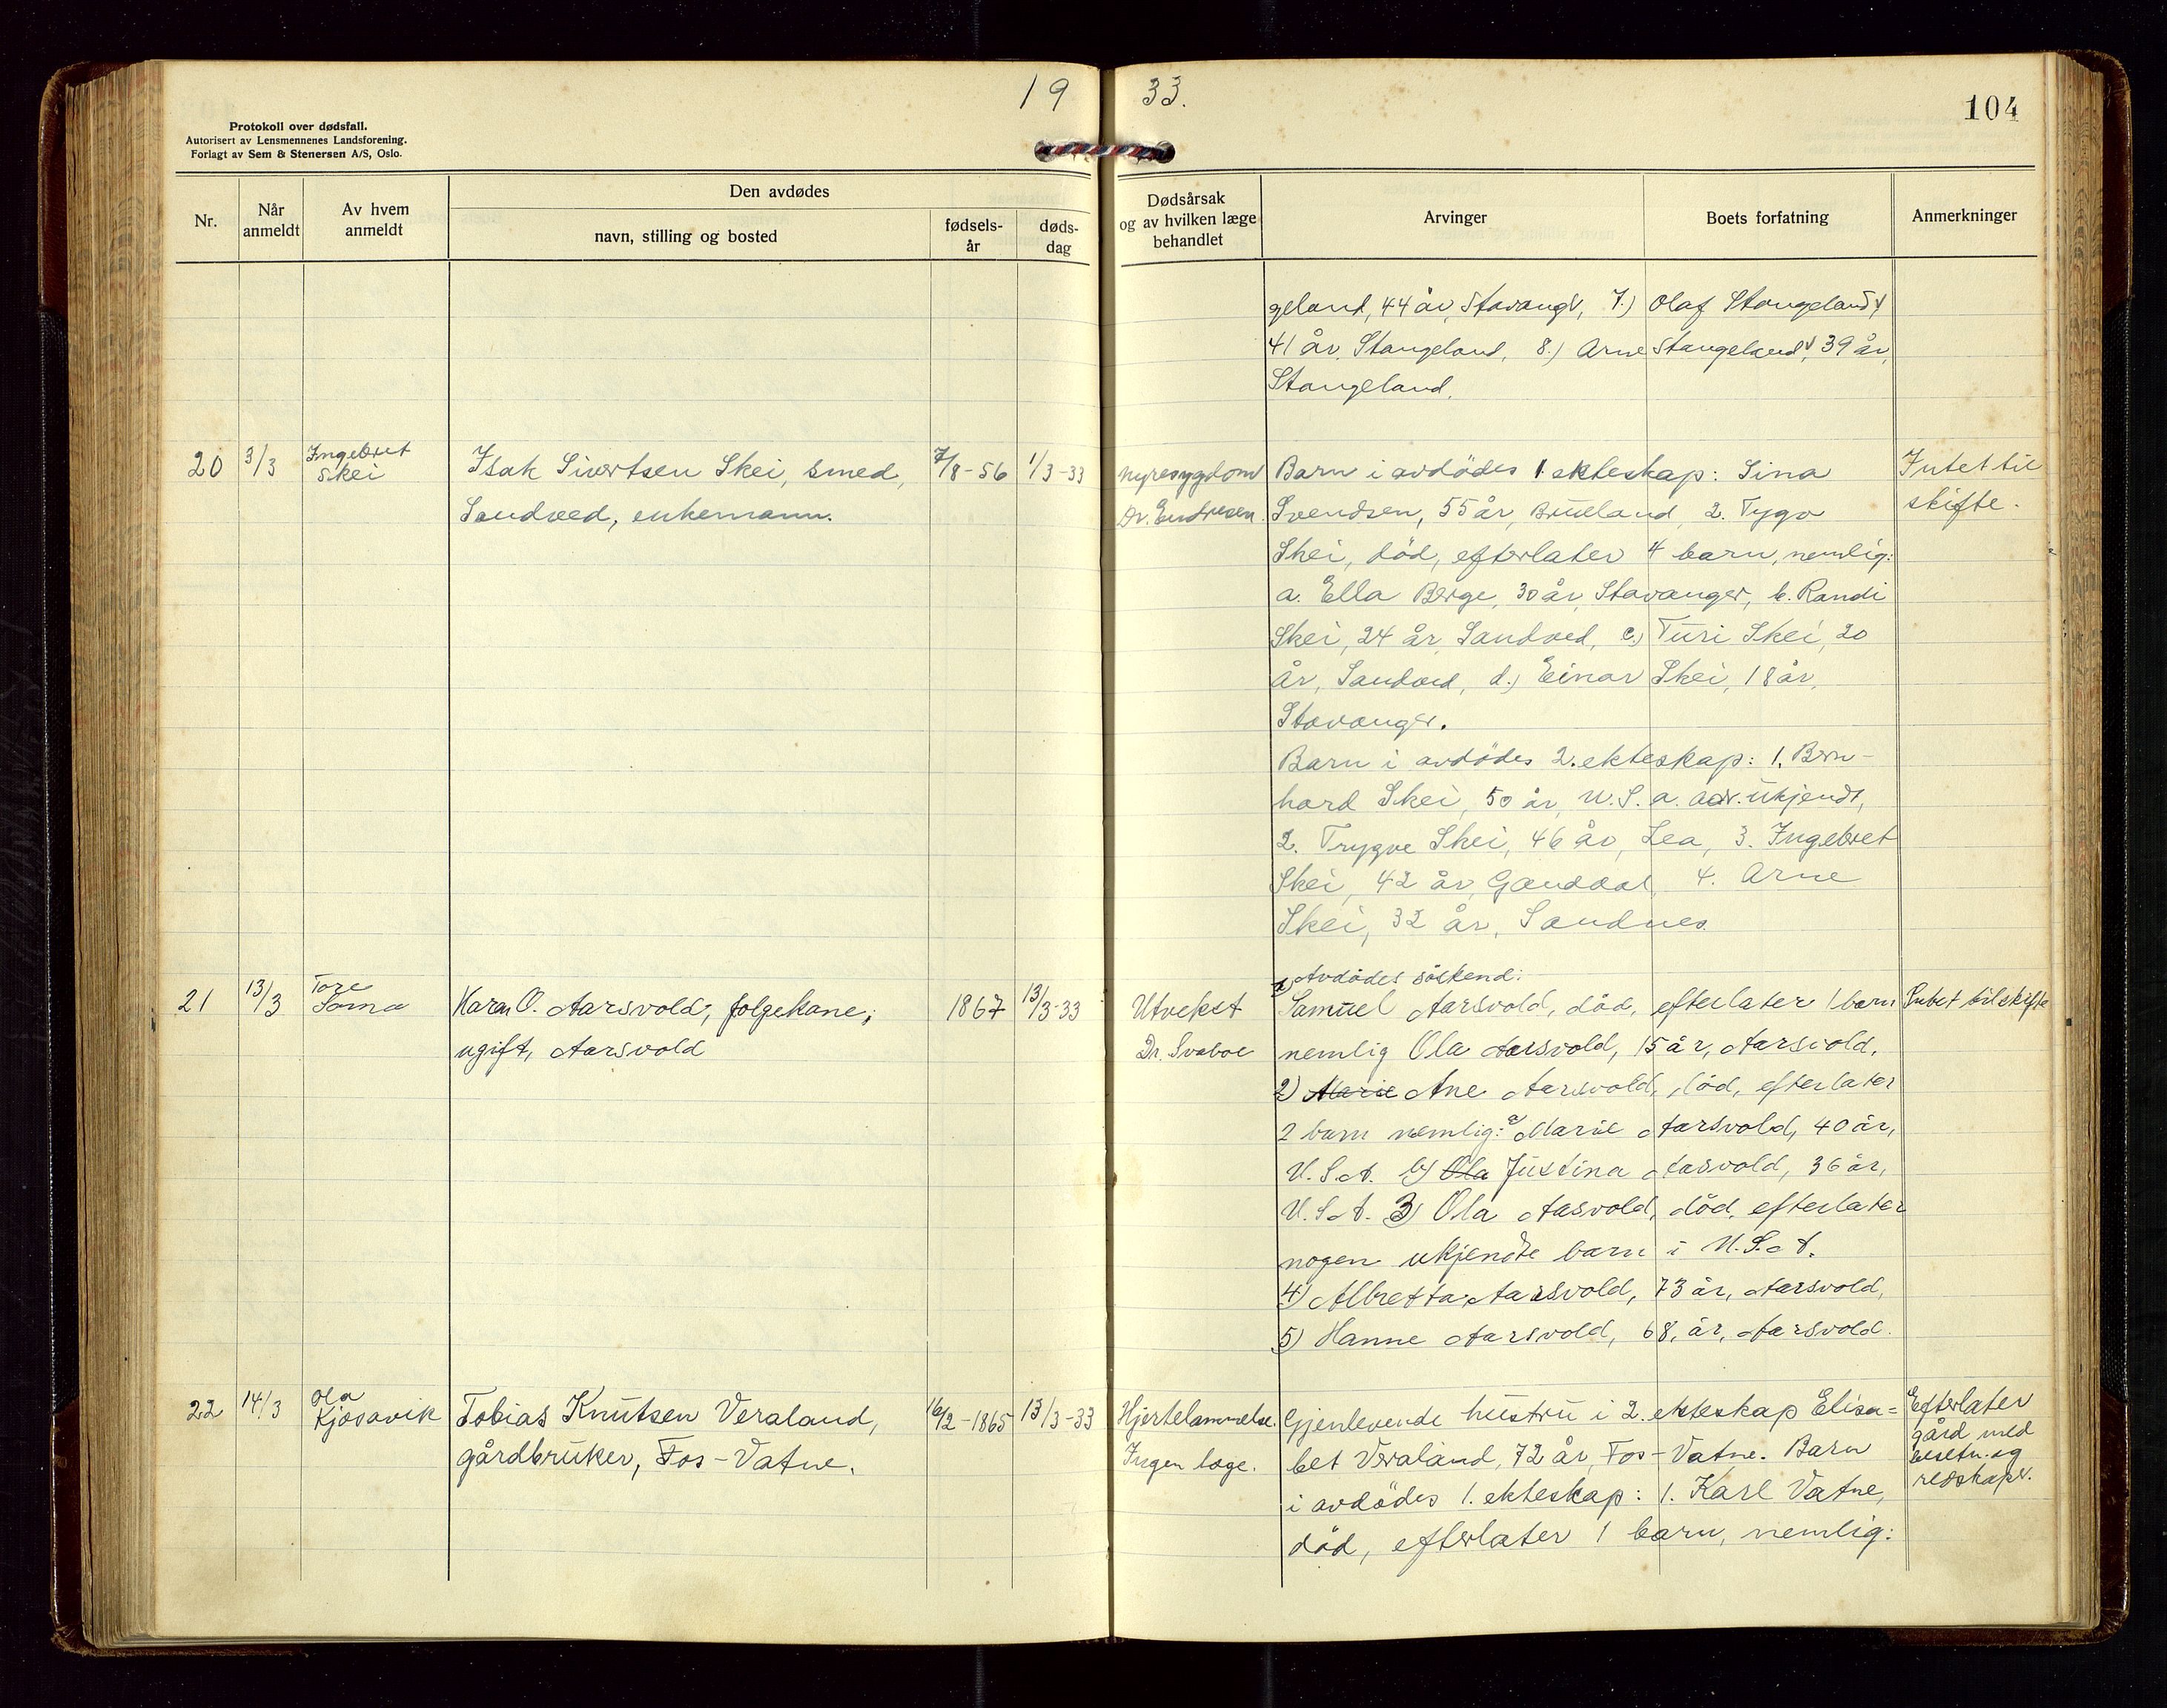 19 33.
104
Protokoll over dødsfall.
Autorisert av Lensmennenes Landsforening.
Forlagt av Sem & Stenersen A/S, Oslo.
Nr.
Når anmeldt
Av hvem anmeldt
Den avdødes
navn, stilling og bosted
fødsels-år
døds-dag
Dødsårsak og av hvilken læge behandlet
Arvinger
Boets forfatning
Anmerkninger
geland, 44 år, Stavangr, 7.) Olaf Stangeland
41 år, Stangeland, 8.) Arne Stangeland, 39 år,
Stangeland.
20 3/3 Ingebret Skei
Isak Sivertsen Skei, smed,
Sandved, enkemann.
7/8-56 1/3-33
Nyresygdom
Dr. Endresen.
Barn i avdödes 1. ekteskap: Sina
Svendsen, 55 år, Brueland, 2. Tygo
Skei, död, efterlater 4 barn, nemlig:
a. Ella Berge, 30 år, Stavanger, b. Randi
Skei, 24 år, Sandved, c.) Turi Skei, 20
år, Sandved, d.) Einar Skei, 18 år,
Stavanger.
Barn i avdödes 2. ekteskap: 1. Bern-
hard Skei, 50 år, U.S.a. adr. ukjendt,
2. Trygve Skei, 46 år, Lea, 3. Ingebret
Skei, 42 år, Ganddal, 4. Arne
Skei, 32 år, Sandnes.
Intet til
skifte.
21 13/3 Tore Soma
Karen O. Aarsvold, folgekone,
ugift, Aarsvold
1867 13/3-33
Utvekst
Dr. Svaboe
Avdödes söskend:
1) Samuel Aarsvold, död, efterlater 1 barn
nemlig Ola Aarsvold, 15 år, Aarsvold,
2) Marie Ane Aarsvold, död, efterlater
2 barn nemlig: a) Marie Aarsvold, 40 år,
U.S.A. b) Ola Justina Aasvold, 36 år,
U.S.A. 3) Ola Aasvold, död, efterlater
nogen ukjendte barn i U.S.A.
4) Albretta Aarsvold, 73 år, Aarsvold,
5) Hanne Aarsvold, 68, år, Aarsvold.
Intet til skifte
22 14/3 Ola Kjosavik
Tobias Knutsen Veraland,
gårdbruker, Fos-Vatne.
-1865 13/3-33
Hjertelammelse.
Ingen læge.
Gjenlevende hustru i 2. ekteskap Elisa=
bet Veraland, 72 år, Fos-Vatne. Barn
i avdödes 1. ekteskap: 1. Karl Vatne,
död, efterlater 1 barn, nemlig:
Efterlater
gård med
besetn. og
redskaper.